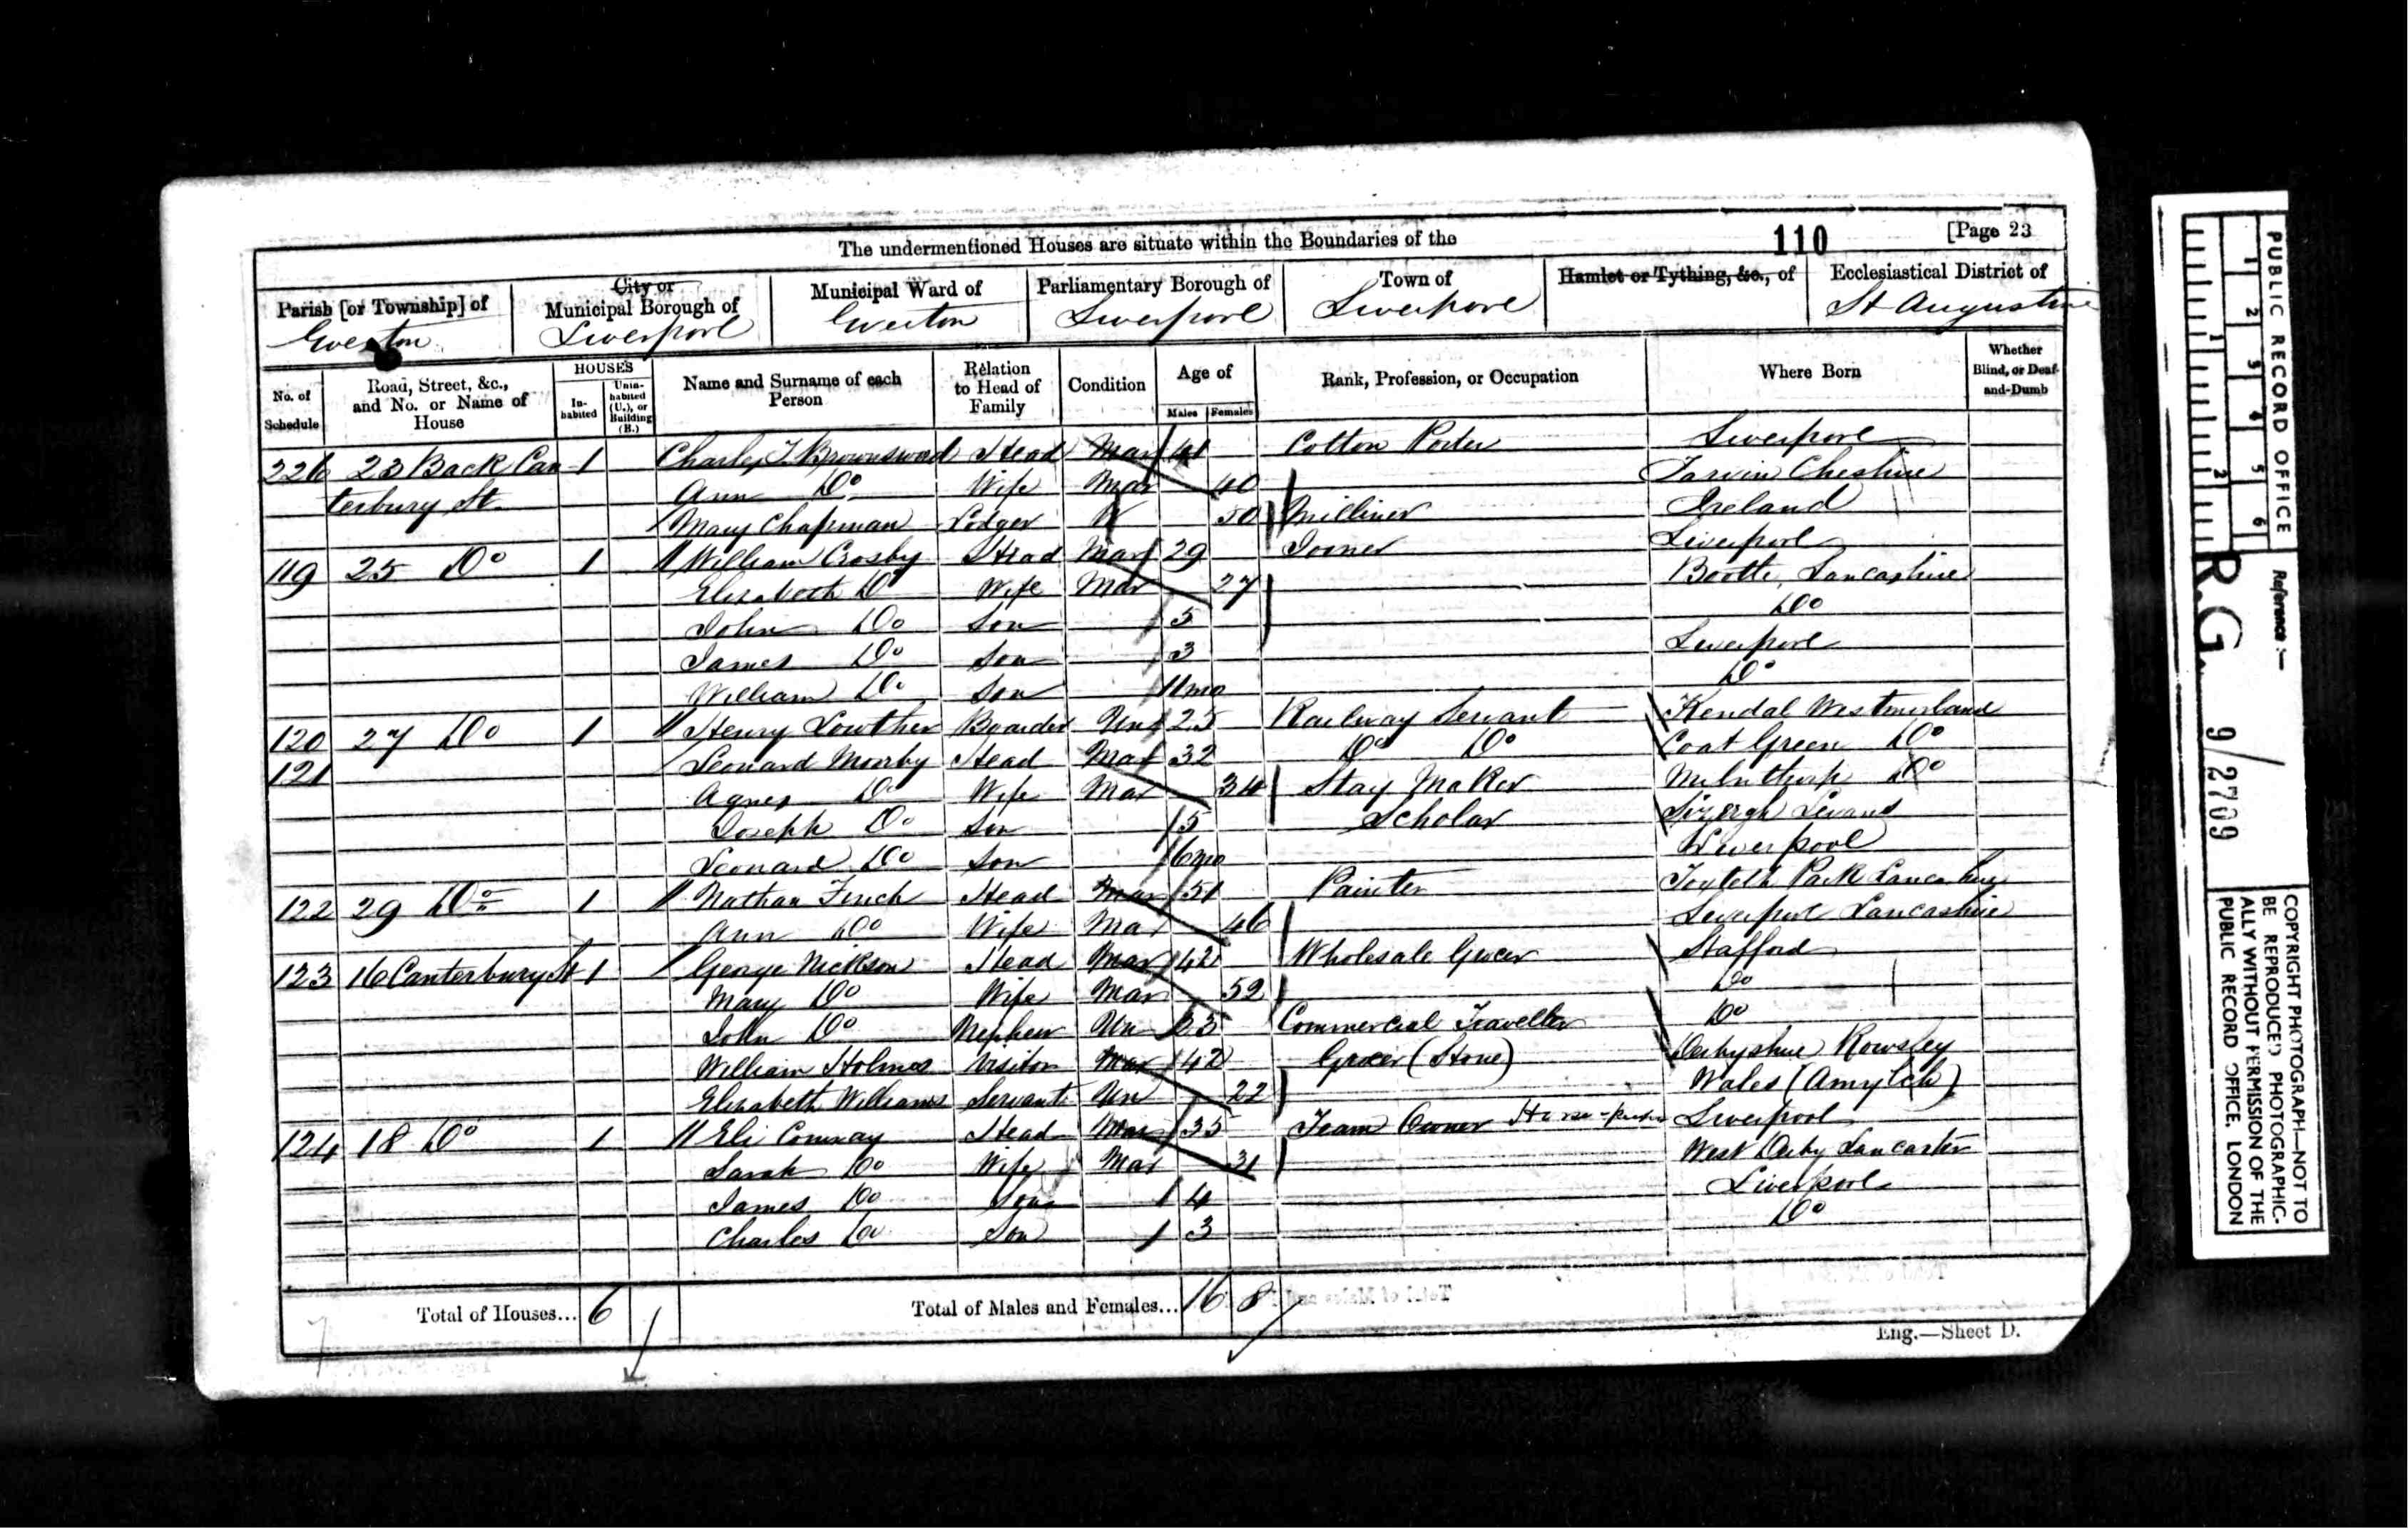 The undermentioned Houses are situate within the Boundaries of the 110 [Page 23
Parish [or Township] of Everton
City or Municipal Borough of Liverpool
Municipal Ward of Everton
Parliamentary Borough of Liverpool
Town of Liverpool
Hamlet or Tything, &c., of
Ecclesiastical District of St Augustine
No. of Schedule
Road, Street, &c., and No. or Name of House
HOUSES
In-habited
Unin-habited (U.), or Building (B.)
Name and Surname of each Person
Relation to Head of Family
Condition
Age of
Males Females
Rank, Profession, or Occupation
Where Born
Whether Blind, or Deaf-and-Dumb
226 23 Back Can 1 Charles T Brownsword Head Mar 41 Cotton Porter Liverpool
terbury St. Ann Do Wife Mar 40 Tarvin Cheshire
Mary Chapman Lodger W 50 Milliner Ireland
119 25 Do 1 William Crosby Head Mar 29 Joiner Liverpool
Elizabeth Do Wife Mar 27 Bootle, Lancashire
John Do Son 5 Do
James Do Son 3 Liverpool
William Do Son 11mo Do
120 27 Do 1 Henry Lowther Boarder Un 25 Railway Servant Kendal Westmorland
121 Leonard Head Mar 32 Do Do Coat Green Do
Agnes Do Wife Mar 34 Stay Maker Milnthorp Do
Joseph Do Son 5 Scholar Sizergh
Leonard Do Son 6mo Liverpool
122 29 Do 1 Nathan Finch Head Mar 51 Painter Toxteth Park Lancashire
Ann Do Wife Mar 46 Liverpool Lancashire
123 16 Canterbury St 1 George Nickson Head Mar 42 Wholesale Grocer Stafford
Mary Do Wife Mar 52 Do
John Do Nephew Un 23 Commercial Traveller Do
William Holmes Visitor Mar 42 Grocer (Stone) Derbyshire Rowsley
Elizabeth Williams Servant Un 22 Wales (Amylch)
124 18 Do 1 Eli Conway Head Mar 35 Team Owner Liverpool
Sarah Do Wife Mar 31 West Derby Lancaster
James Do Son 4 Liverpool
Charles Do Son 3 Do
Total of Houses... 6 Total of Males and Females... 16 8
Eng.—Sheet D.
PUBLIC RECORD OFFICE
1 2 3 4 5 6
1 2
Reference :—
R.G. 9/2709
COPYRIGHT PHOTOGRAPH—NOT TO
BE REPRODUCED PHOTOGRAPHIC-
ALLY WITHOUT PERMISSION OF THE
PUBLIC RECORD OFFICE, LONDON